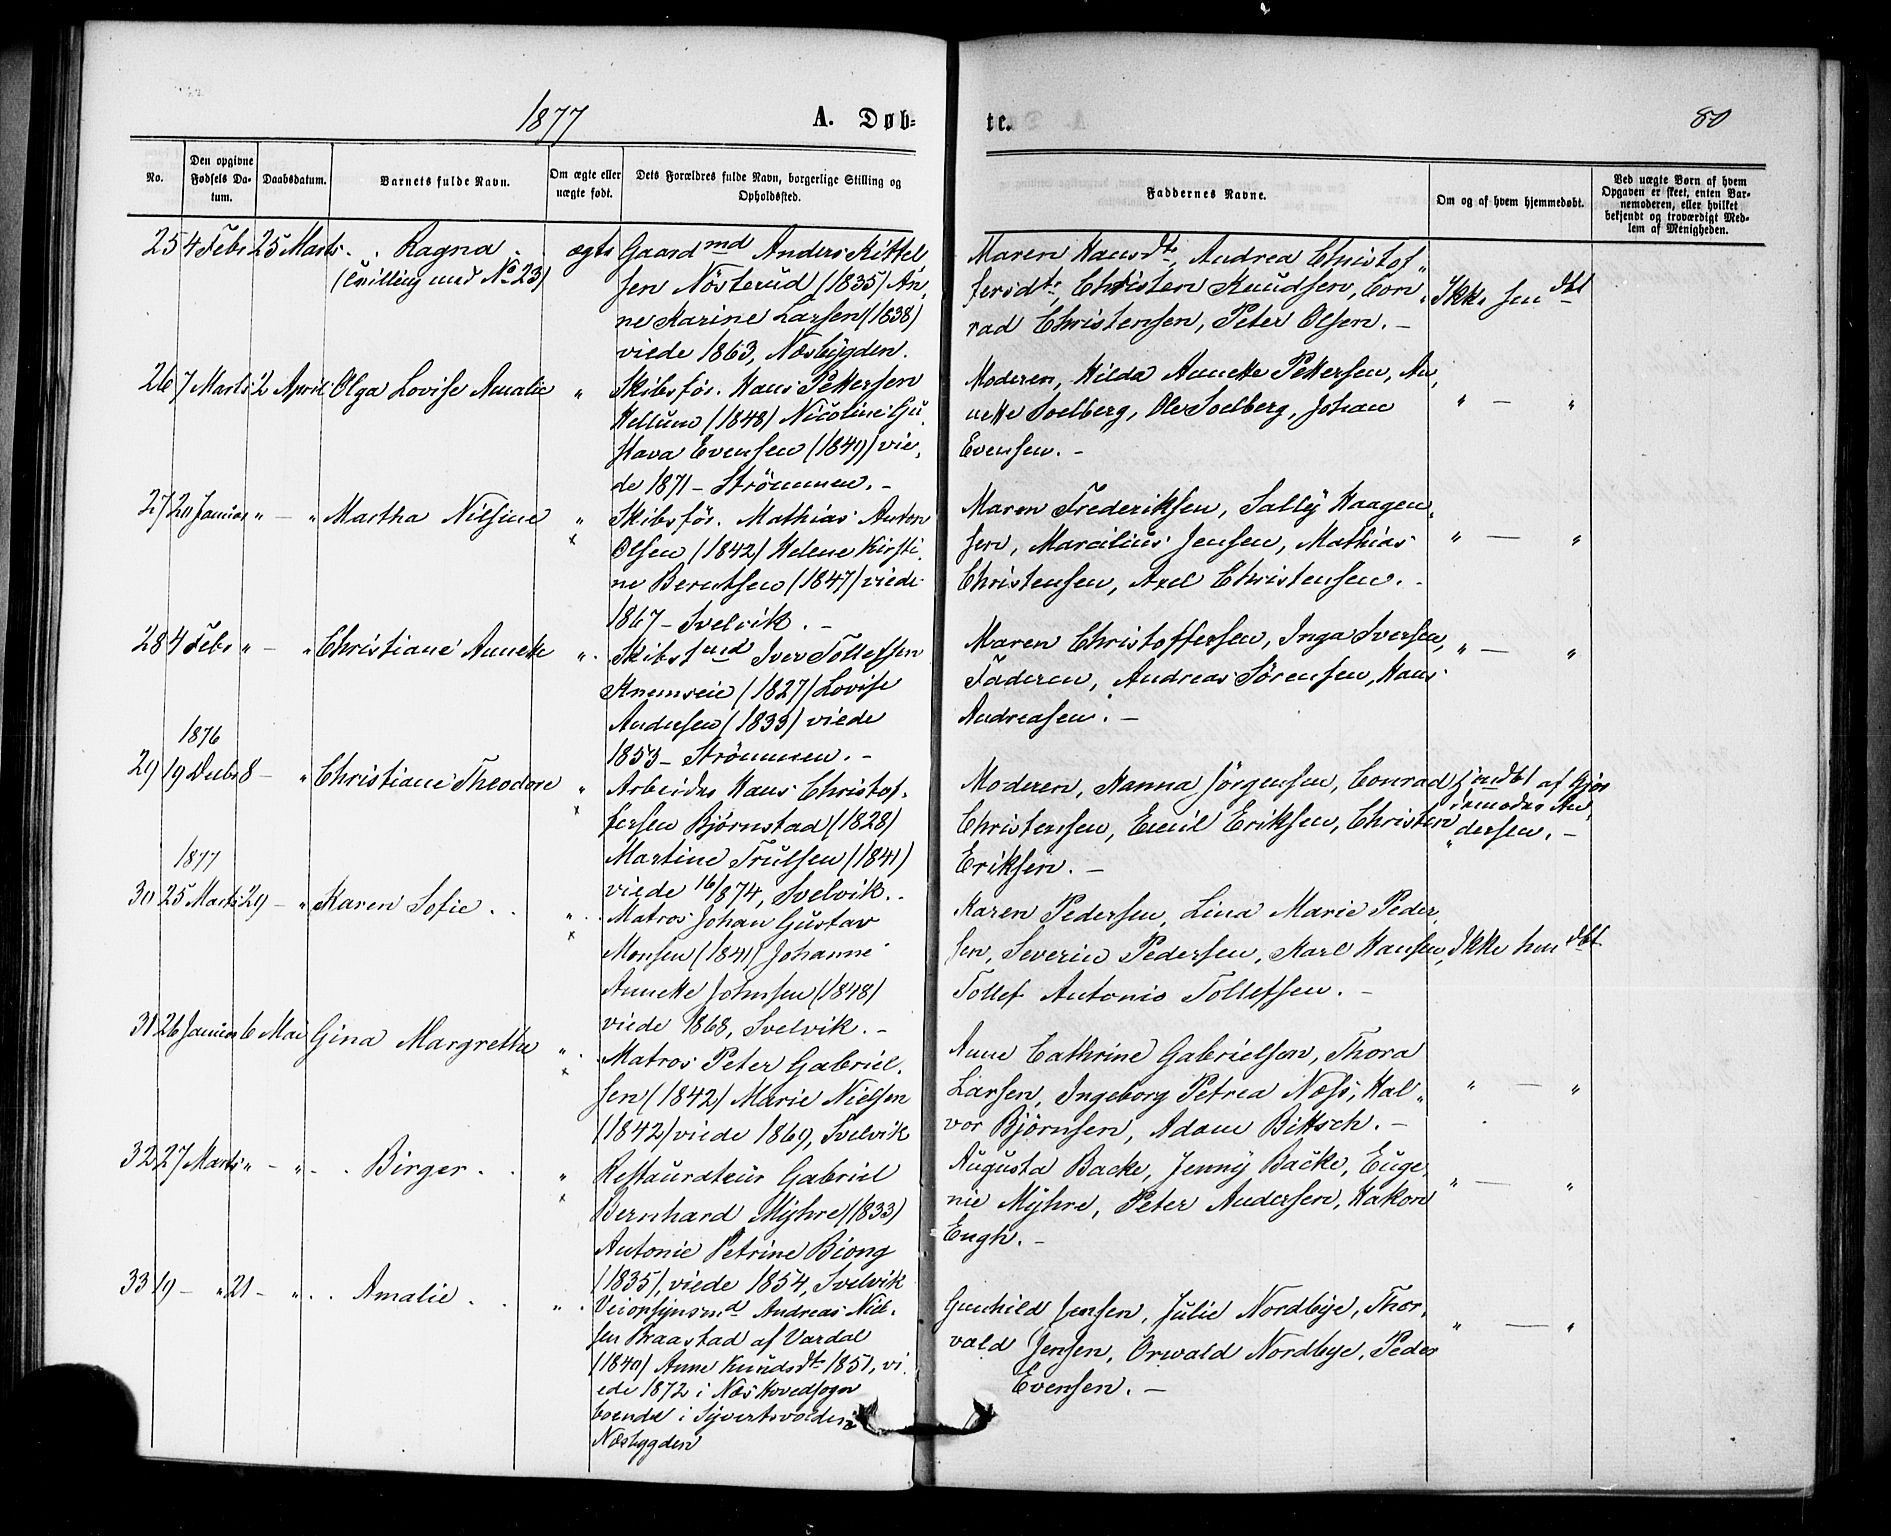 1877 A. Døb-
te. 80
No.
Den opgivne Fødsels Da-tum.
Daabsdatum.
Barnets fulde Navn.
Om ægte eller uægte født.
Dets Forældres fulde Navn, borgerlige Stilling og Opholdssted.
Faddernes Navne.
Om og af hvem hjemmedøbt.
Ved uægte Børn af hvem Opgaven er skeet, enten Bar-nemoderen, eller hvilket bekjendt og troværdigt Med-lem af Menigheden.
25 4 Febr 25 Marts Ragna ægte Gaardmd Anders Kittel
(Tvilling med No 23) sen Nösterud (1835) An,
ne Karine Larsen (1838)
viede 1863, Næsbÿgden.
Maren Hansdtr, Andrea Christof„
fersdtr, Christen Knudsen, Con„ Ikke hmdbt
rad Christensen, Peter Olsen. –
26 7 Marts 2 April Olga Lovise Amalie „ Skibsför. Hans Pettersen
Hellum (1848) Nicoline Gu,
stava Evensen (1849) vie,
de 1871 – Strömmen. –
Moderen, Hilda Annette Pettersen, An,
nette Soelberg, Ole Soelberg, Johan „ — „
Evensen. –
27 20 Januar „ — „ Martha Nilsine „ Skibsför. Mathias Anton
x Olsen (1842) Helene Kirsti,
ne Berntsen (1847) viede
1867 – Svelvik. –
Maren Frederiksen, Sally Haagen,
sen, Marcilius Jensen, Mathias „ — „
Christensen, Axel Christensen. –
28 4 Febr „ — „ Christiane Annette „ Skibstmd Iver Tollefsen
Knemveie (1827) Lovise
Andersen (1833) viede
1853 – Strömmen. –
Maren Christoffersen, Inga Iversen, „ — „
Faderen, Andreas Sörensen, Hans
Andreasen. –
1876
29 19 Decbr 8 — „ Christiane Theodore „ Arbeider Hans Christof,
x fersen Björnstad (1828)
Martine Trulsen (1841)
viede 16/874, Svelvik. .
Moderen, Hanna Jörgensen, Conrad hjmdbt af Gjor
Christensen, Emil Eriksen, Christen demoder An,
Eriksen. – dersen. –
1877
30 25 Marts 29 — „ Karen Sofie. . „ Matros Johan Gustav
x Monsen (1841) Johanne
Annette Johnsen (1848)
viede 1868, Svelvik. –
Karen Pedersen, Lina Marie Peder,
sen, Severin Pedersen, Karl Hansen, Ikke hmdbt
Tollef Antonio Tollefsen. –
31 26 Januar 6 Mai Gina Margrethe „ Matros Peter Gabriel,
x sen (1842) Marie Nielsen
(1842) viede 1869, Svelvik
Anne Cathrine Gabrielsen, Thora
Larsen, Ingeborg Petrea Næss, Hal„ „ — „
vor Björnsen, Adam Bittsch. –
32 27 Marts „ — „ Birger. . „ Restaurateur Gabriel
x Bernhard Mÿhre (1833)
Antonie Petrine Biong
(1835), viede 1854, Svelvik
Augusta Backe, Jenny Backe, Euge,
nie Mÿhre, Peter Andersen, Hakon „ — „
Engh. –
33 19 — „ 21 — „ Amalie. . „ Veiopsynsmd Andreas Niel,
sen Braastad af Vardal
(1840) Anne Knudsdtr 1851, vi,
ede 1872 i Næs Hovedsogn
boende i Sÿvertsvolden
Næsbygden
Gunhild Jensen, Julie Nordbye, Thor,
vald Jensen, Orvald Nordbye, Peder „ — „
Evensen. –